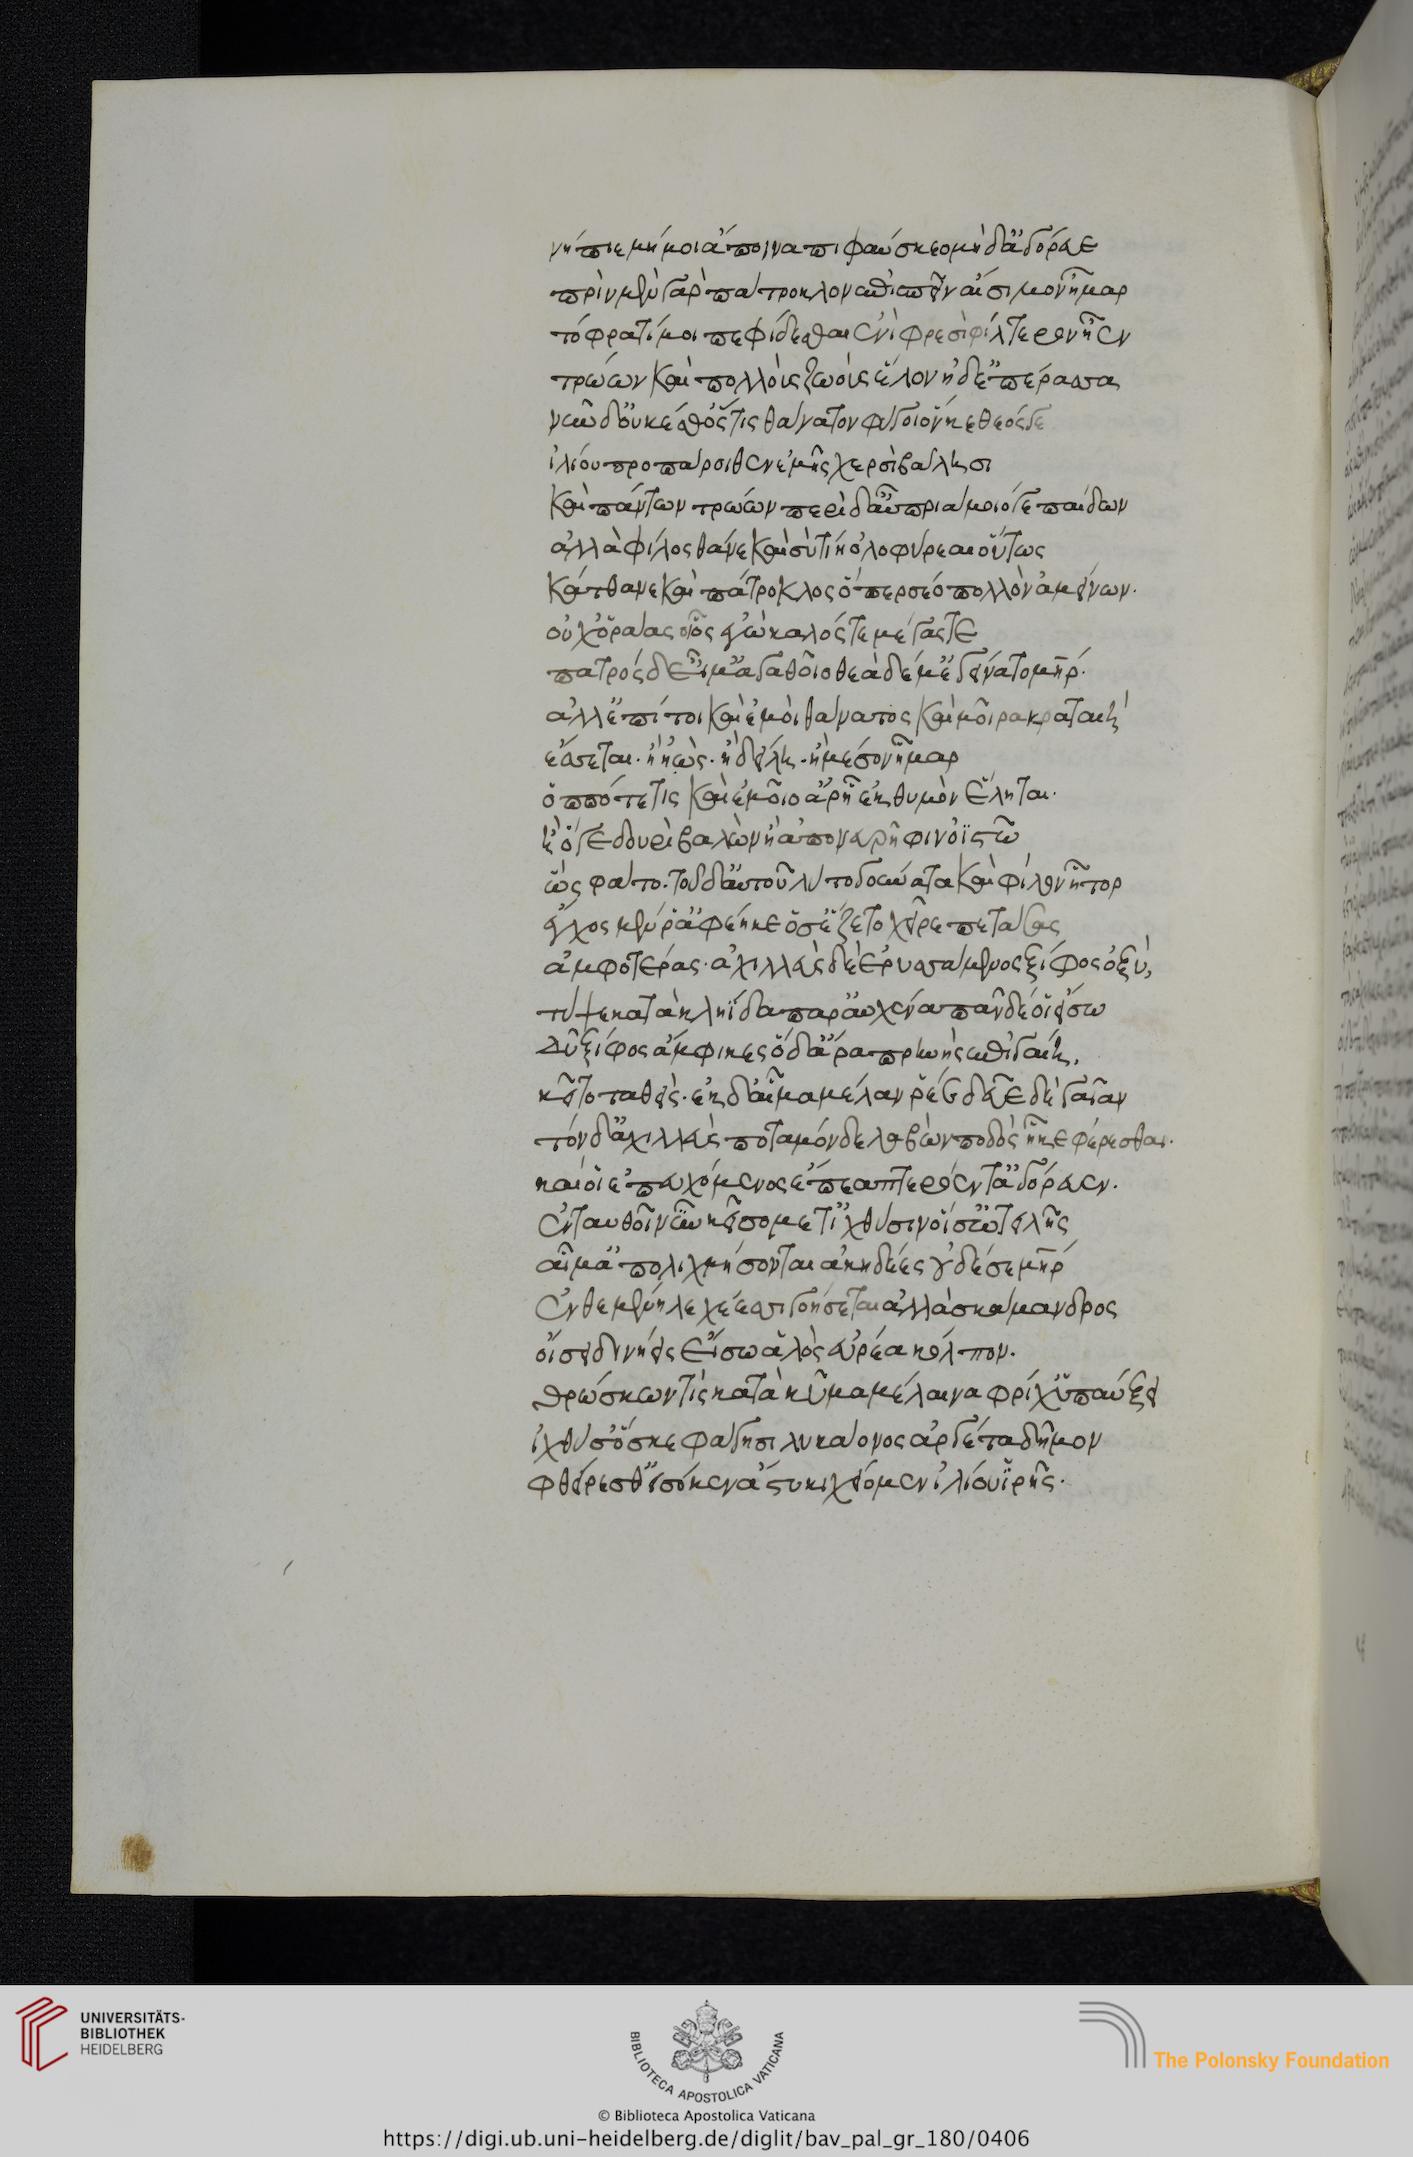 νήπιε μή μοι ἄποινα πιφαύσκεο μὴ δ' ἀγόρευε
πρὶν μὲν γὰρ πάτροκλον ἐπισπεῖν αἴσιμον ἦμαρ
τόφρα τί μοι πεφιδέσθαι ἐνὶ φρεσὶ φίλτερον ἦεν
τρώων καὶ πολλοὺς ζωοὺς ἕλον ἠδ' ἐπέρασσα
νῦν δ' οὐκ ἔσθ' ὅστις θάνατον φύγοι ὅν κε θεός γε
ἰλίου προπάροιθεν ἐμῆς χερσὶ βάλησι
καὶ πάντων τρώων περὶ δ' αὖ πριάμοιό γε παίδων
ἀλλὰ φίλος θάνε καὶ σύ τίη ὀλοφύρεαι οὕτως
κάτθανε καὶ πάτροκλος ὅπερ σέο πολλὸν ἀμείνων.
οὐχ ὁράας οἷος ἐγὼ καλός τε μέγας τε
πατρός δ' εἴμ' ἀγαθοῖο θεὰ δέ με γείνατο μήτηρ.
ἀλλ' ἔπί τοι καὶ ἐμοὶ θάνατος καὶ μοῖρα κραταιή
ἔσσεται. ἢ ἠὼς. ἢ δείλη. ἢ μέσον ἦμαρ
ὁππότε τις καὶ ἐμοῖο ἄρῃ ἐκ θυμὸν ἕληται.
ἢ ὅγε δουρὶ βαλὼν ἢ ἀπὸ νευρῆφιν ὀϊστῷ
ὣς φάτο. τοῦ δ' αὐτοῦ λύτο γούνατα καὶ φίλον ἦτορ
ἔγχος μέν ῥ' ἀφέηκε ὃ δ' ἕζετο χεῖρε πετάσας
ἀμφοτέρας. ἀχιλλεὺς δὲ ἐρυσσάμενος ξίφος ὀξύ,
τύψε κατὰ κληΐδα παρ' αὐχένα πᾶν δέ οἱ εἴσω
δῦ ξίφος ἄμφηκες ὃ δ' ἄρα πρηνὴς ἐπὶ γαίη,
κεῖτο ταθείς. ἐκ δ' αἷμα μέλαν ῥέε δεῦε δὲ γαῖαν
τόν δ' ἀχιλλεὺς ποταμόνδε λαβὼν ποδὸς ἧκε φέρεσθαι.
καί οἱ ἐπευχόμενος ἔπεα πτερόεντ' ἀγόρευεν.
ἐνταυθοῖ νῦν κεῖσο μετ' ἰχθύσιν οἵ σ' ὠτειλῆς
αἷμ' ἀπολιχμήσονται ἀκηδέες οὐδέ σε μήτηρ
ἐνθεμένη λεχέεσσι γοήσεται ἀλλὰ σκάμανδρος
οἴσει δινήεις εἴσω ἁλὸς εὐρέα κόλπον.
θρώσκων τὶς κατὰ κῦμα μέλαινα φρίχ' ὑπαΰξει
ἰχθύς ὅς κε φάγησι λυκάονος ἀργέτα δημὸν
φθείρεσθ' εἰσόκεν ἄστυ κιχείομεν ἰλίου ἱρῆς.
UNIVERSITÄTS-
BIBLIOTHEK
HEIDELBERG
BIBLIOTECA APOSTOLICA VATICANA
The Polonsky Foundation
© Biblioteca Apostolica Vaticana
https://digi.ub.uni-heidelberg.de/diglit/bav_pal_gr_180/0406